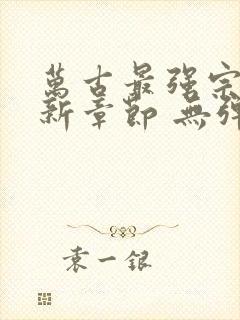 萬古最强宗
新章節 無彈
袁一銀